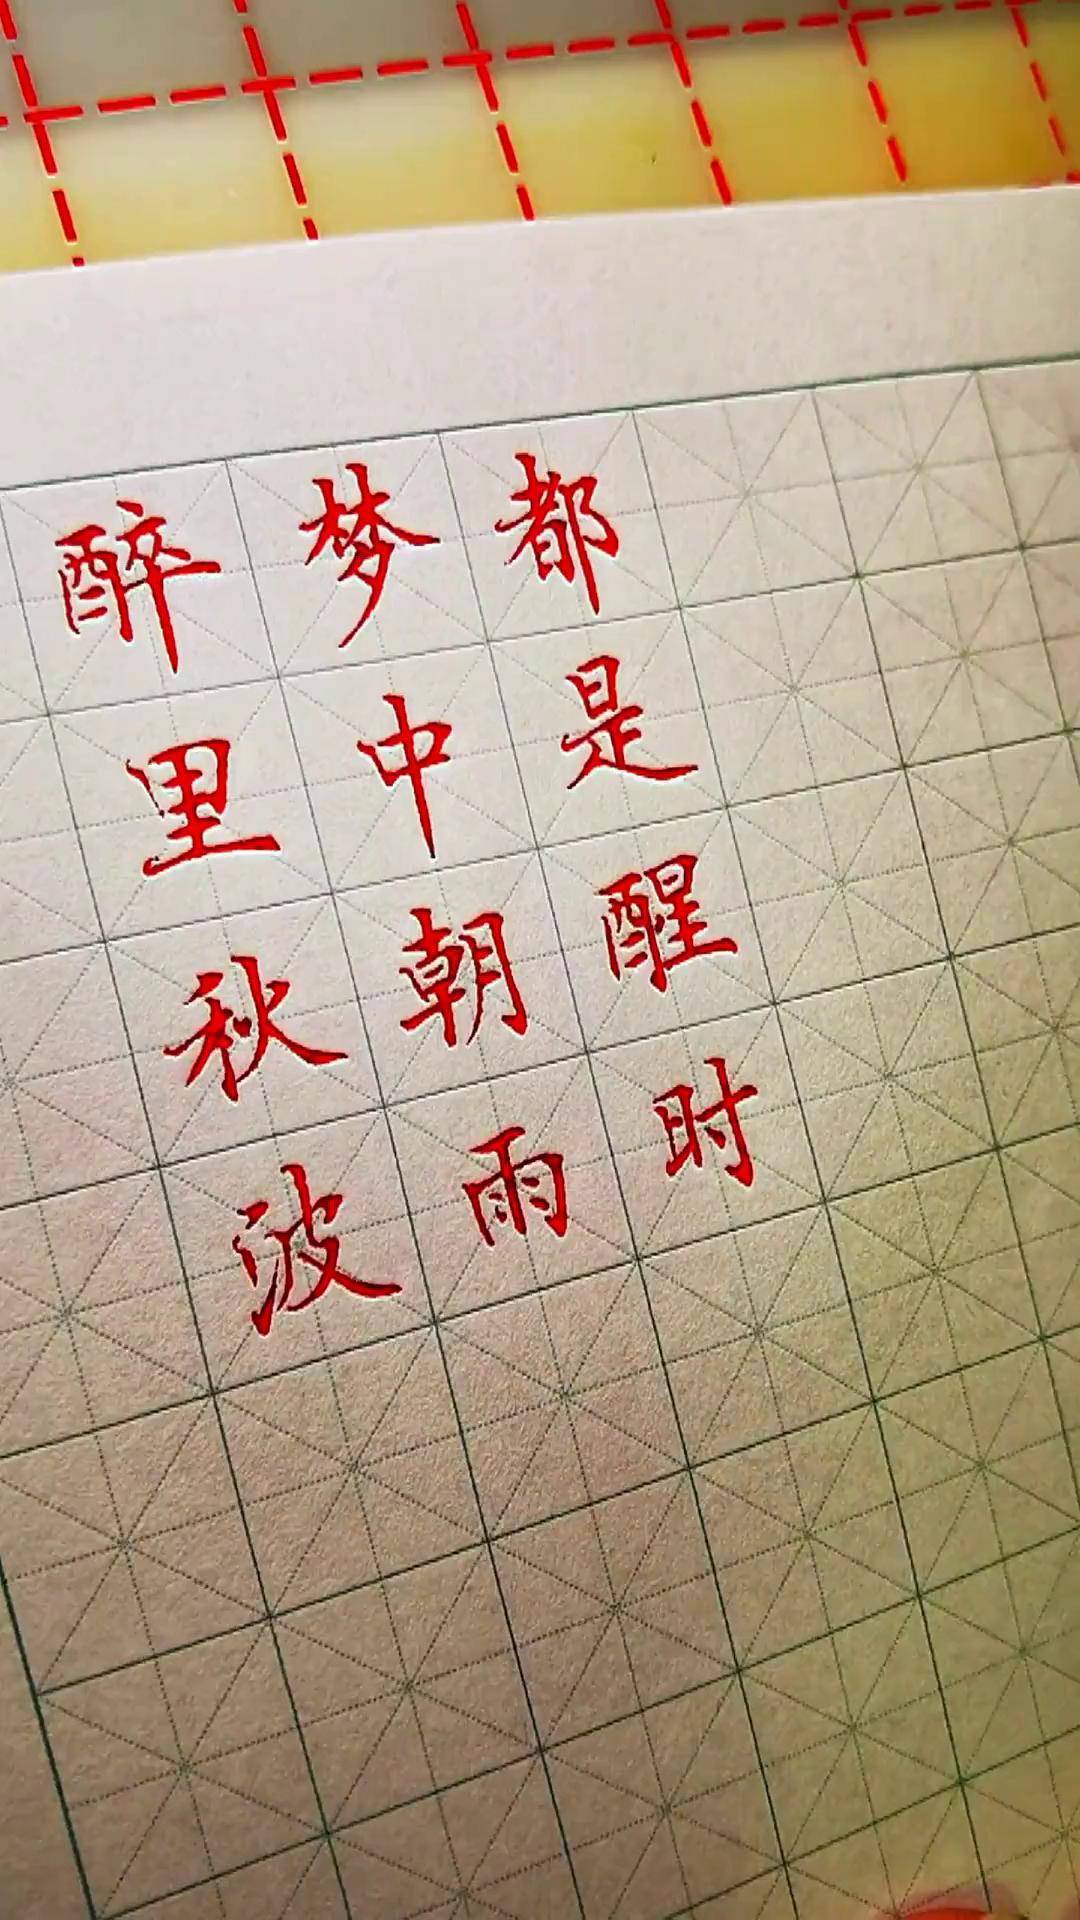 醉里秋波
梦中朝雨
都是醒时